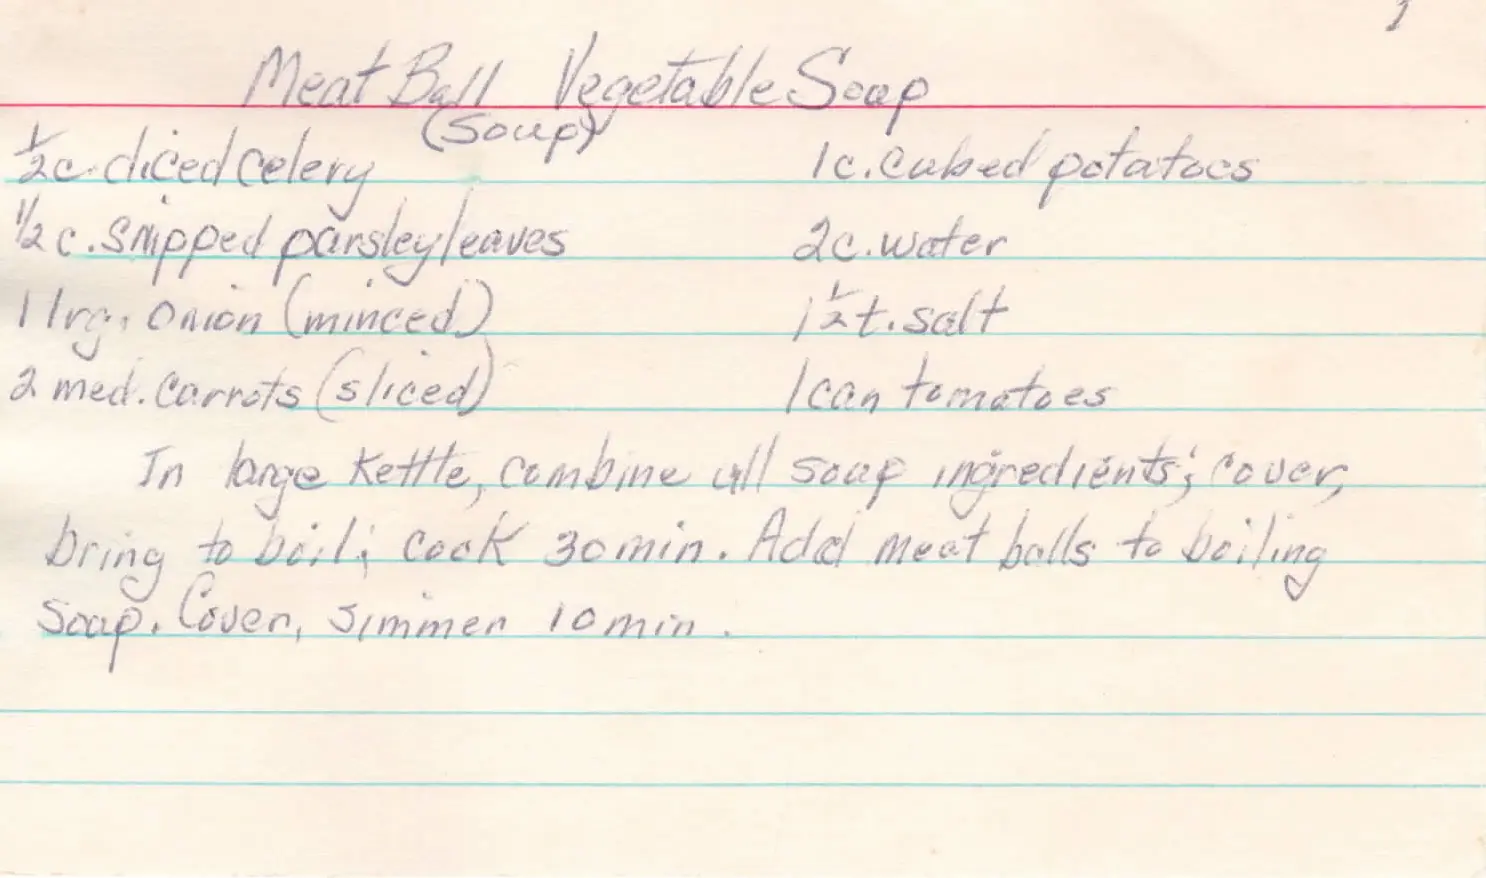 1
Meat Ball Vegetable Soup
(Soup)
1/2 c. diced celery 1 c. cubed potatoes
1/2 c. snipped parsley leaves 2 c. water
1 lrg. onion (minced) 1 1/2 t. salt
2 med. carrots (sliced) 1 can tomatoes
In large kettle, combine all soup ingredients; cover,
bring to boil; cook 30 min. Add meat balls to boiling
soup. Cover, simmer 10 min.